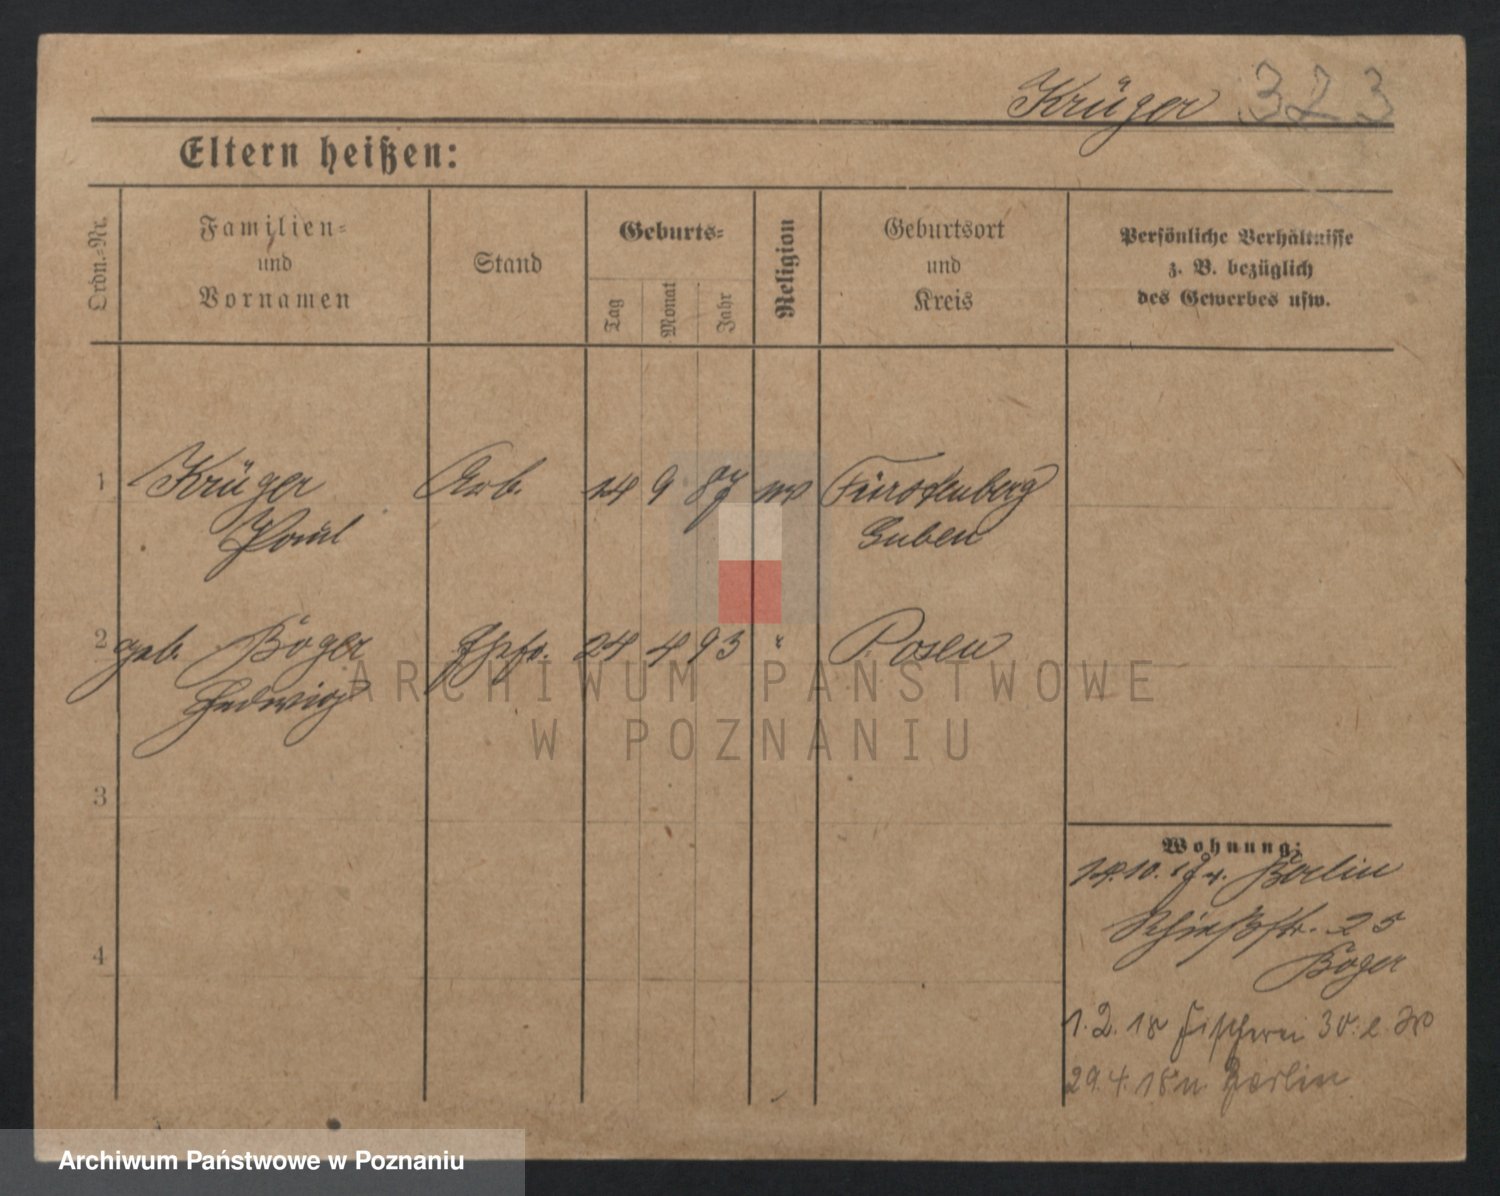 Krüger 323
Eltern heißen:
Ordn.-Nr.
Familien-
und
Vornamen
Stand
Geburts-
Tag
Monat
Jahr
Religion
Geburtsort
und
Kreis
Persönliche Verhältnisse
z. B. bezüglich
des Gewerbes usw.
1 Krüger Arb. 14 9 87 Fürstenberg
Paul Guben
2 geb. Böger Ehefr. 24 4 93 " Posen
Hedwig
3
4
Wohnung:
14.10.17 v. Berlin
Schießstr. 25
Böger
1.2.18 Fischerei 30
29.4.18 n Berlin
ARCHIWUM PAŃSTWOWE
W POZNANIU
Archiwum Państwowe w Poznaniu